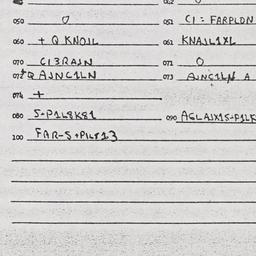 050 0 051 CI = FARPLDN
060 + Q KNOJL 061 KNAJL1XL
070 CI3RAJN 071 0
072 + Q AJNC1LN 073 AJNC1LN A
074 +
080 5-P1L8K81 090 AGLAJX15-P1LK
100 FAR-5+P1L813